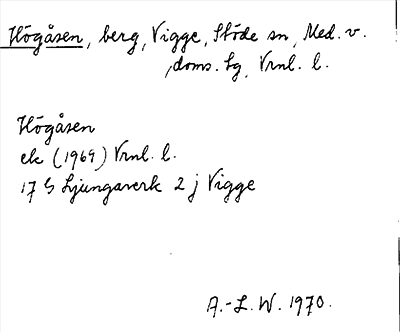 Högåsen, berg, Vigge, Stöde sn, Med. v.
doms. tg, Vrnl. l.
Högåsen
ek (1969) Vrnl. l.
17 G Ljungaverk 2 j Vigge
A.-L. W. 1970.